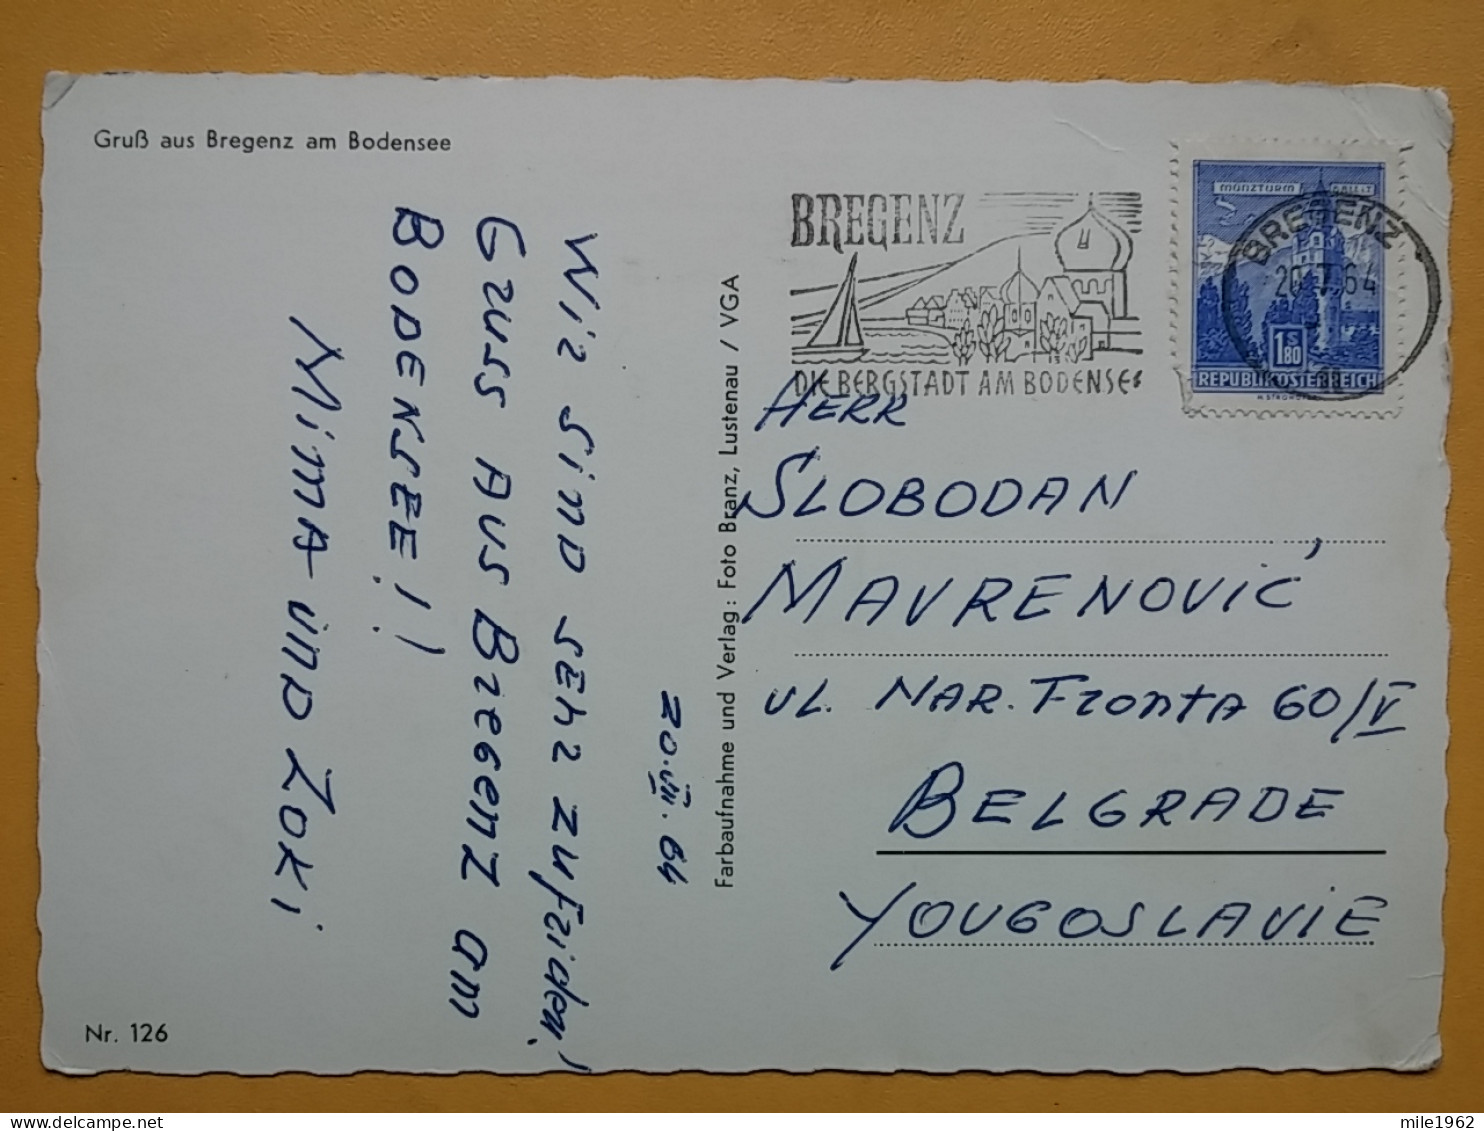 Gruß aus Bregenz am Bodensee
Wir sind sehr zufrieden!
Gruss Aus Bregenz am
BODENSEE!!
Mima und Zoki
20.VIII.64
Nr. 126
Farbaufnahme und Verlag: Foto Branz, Lustenau / VGA
BREGENZ
DIE BERGSTADT AM BODENSEE
MÜNZTURM HALL i.T.
BREGENZ
20.7.64
S
1.80
REPUBLIK ÖSTERREICH
HERR
SLOBODAN
MAVRENOVIĆ
UL. NAR. Fronta 60/V
BELGRADE
YOUGOSLAVIE
mile1962